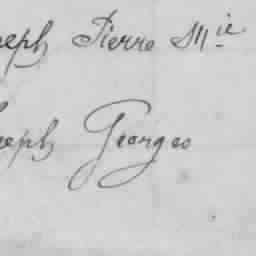 seph Pierre Mie
seph Georges